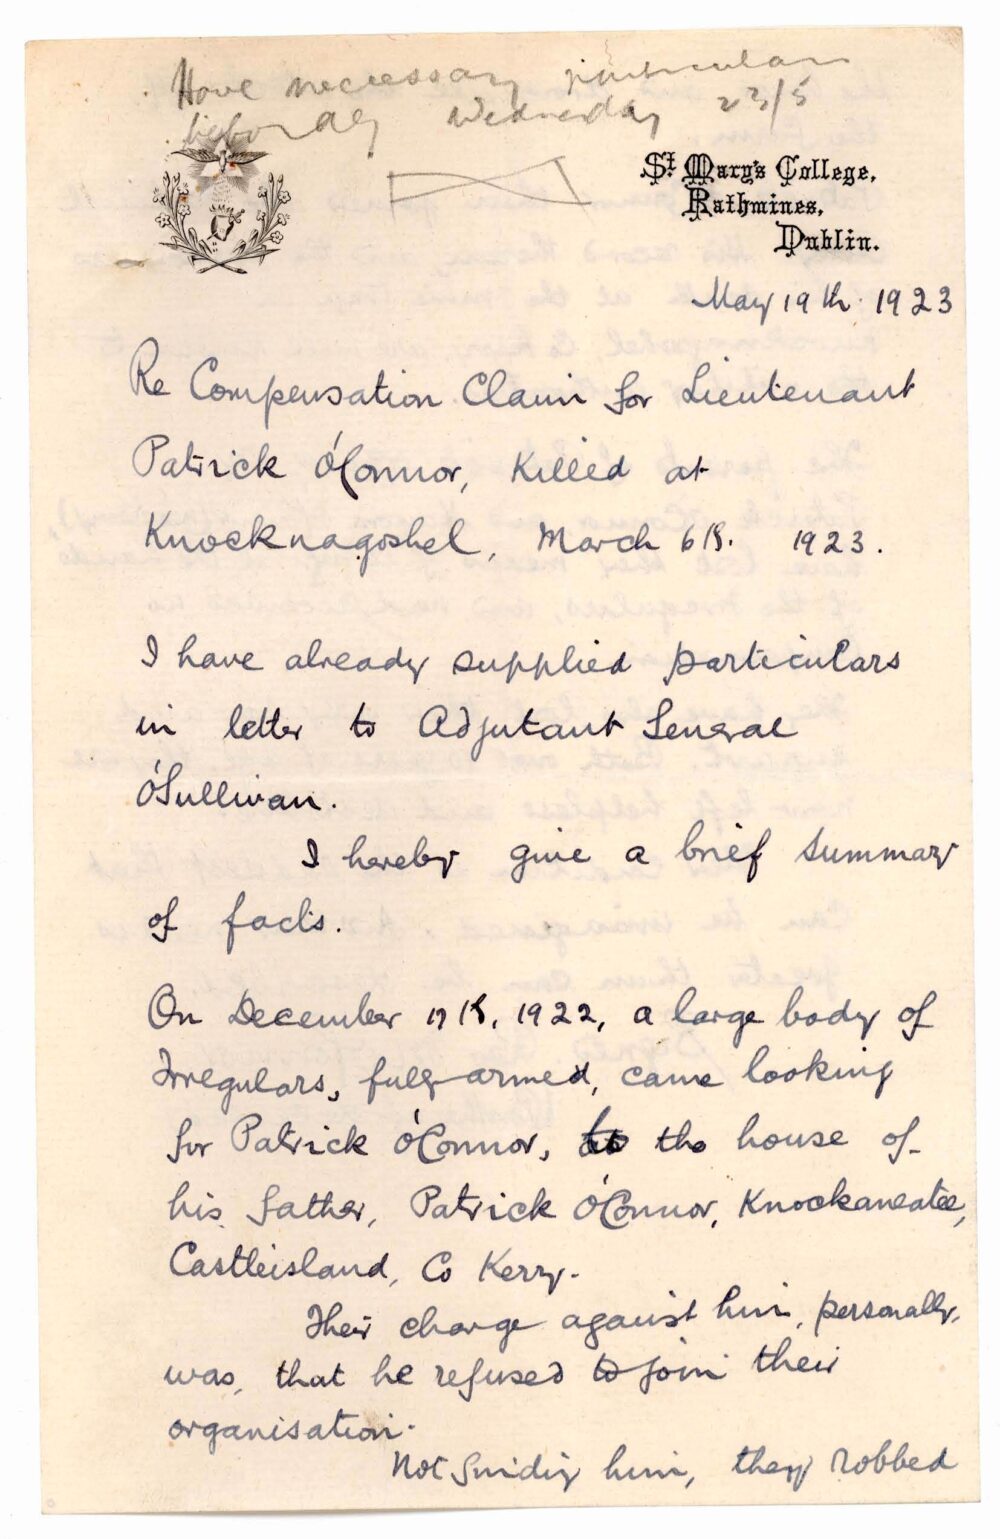 Have necessary particulars
before Wednesday 23/5
St. Mary's College,
Rathmines,
Dublin.
May 19th. 1923
Re Compensation Claim for Lieutenant
Patrick O'Connor, Killed at
Knocknagoshel, March 6th. 1923.
I have already supplied particulars
in letter to Adjutant General
O'Sullivan.
I hereby give a brief summary
of facts.
On December 17th, 1922, a large body of
Irregulars, fully armed, came looking
for Patrick O'Connor, to the house of
his father, Patrick O'Connor, Knockaneatee,
Castleisland, Co Kerry.
Their charge against him, personally,
was, that he refused to join their
organisation.
Not finding him, they robbed